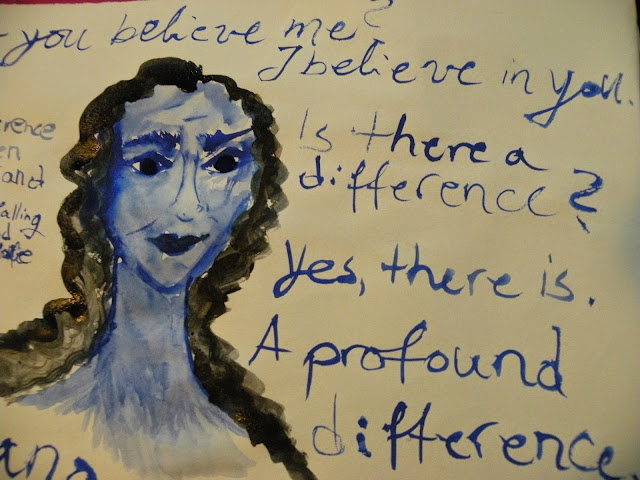 you believe me?
I believe in you.
Is there a
difference?
Yes, there is.
A profound
difference.
erence
en
and
alling